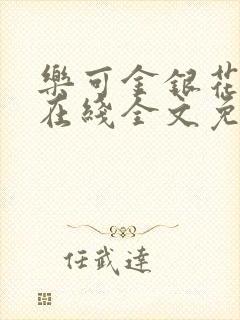 樂可金銀花
在綫全文免
任武達